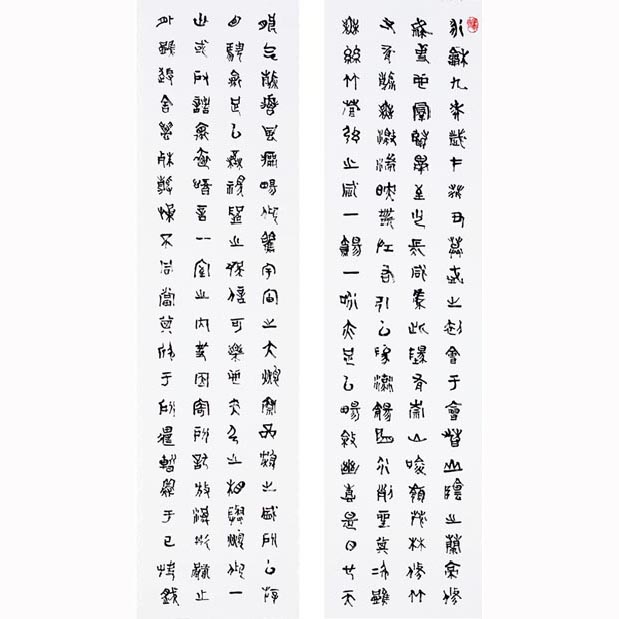 永和九年歲在癸丑暮春之初會于會稽山陰之蘭亭修
禊事也群賢畢至少長咸集此地有崇山峻嶺茂林修竹
又有清流激湍映帶左右引以為流觴曲水列坐其次雖
無絲竹管弦之盛一觴一詠亦足以暢敘幽情是日也天
朗氣清惠風和暢仰觀宇宙之大俯察品類之盛所以遊
目騁懷足以極視聽之娛信可樂也夫人之相與俯仰一
世或取諸懷抱悟言一室之內或因寄所託放浪形骸之
外雖趣舍萬殊靜躁不同當其欣于所遇暫得于己快然